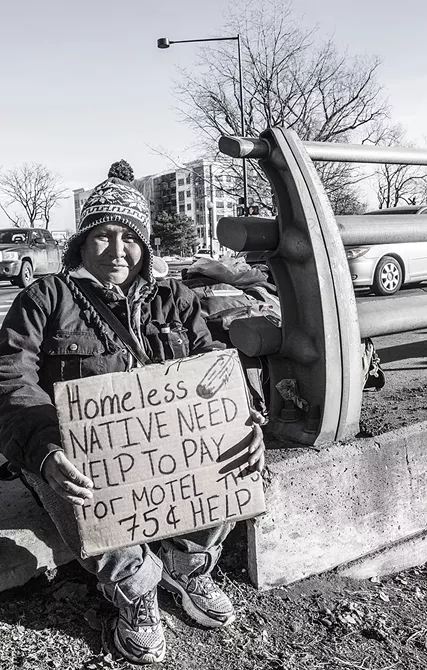 Homeless
NATIVE NEED
HELP TO PAY
for MOTEL THIS
75¢ HELP